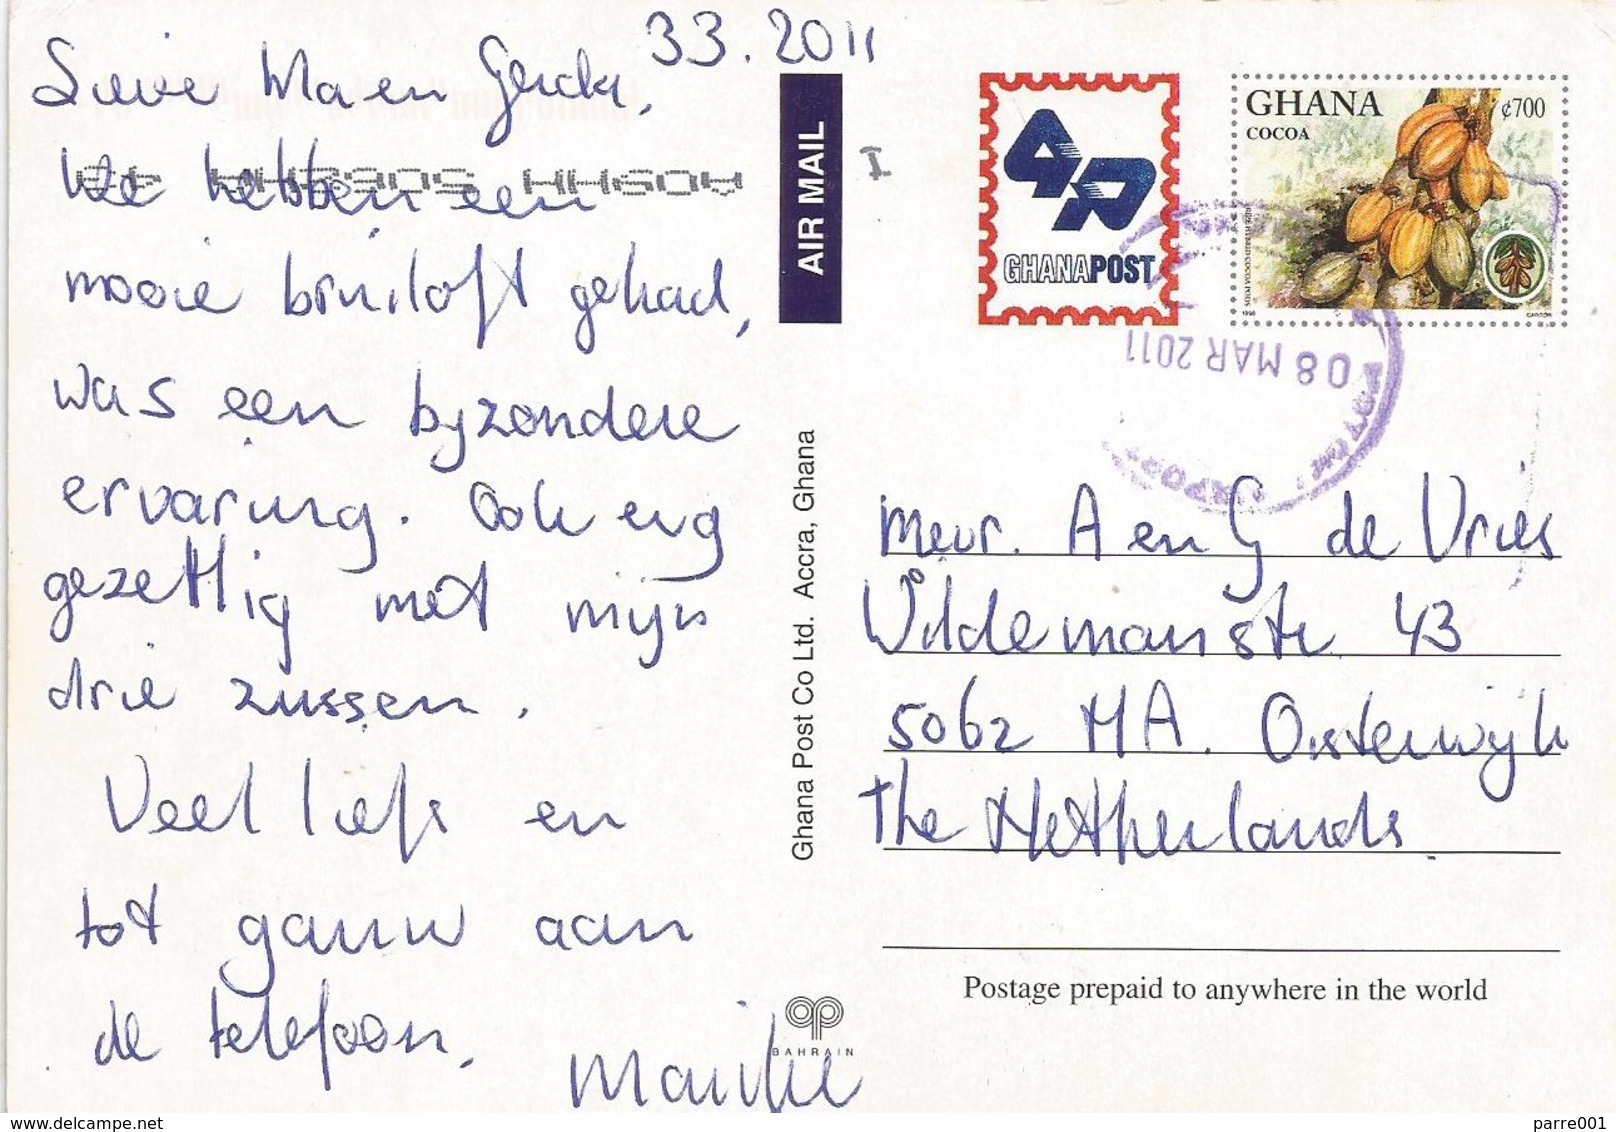 33.2011
Lieve Ma en Gerda,
We hebben een
mooie bruiloft gehad,
was een bijzondere
ervaring. Ook erg
gezettig met mijn
drie zussen.
Veel liefs en
tot gauw aan
de telefoon.
Marijke
AIR MAIL
Ghana Post Co Ltd. Accra, Ghana
BAHRAIN
GHANAPOST
GHANA
COCOA
¢700
1998
CARTOR
08 MAR 2011
mevr. A en G de Vries
Wildemanstr. 43
5062 HA. Oisterwijk
The Netherlands
Postage prepaid to anywhere in the world
delcampe.net
parre001